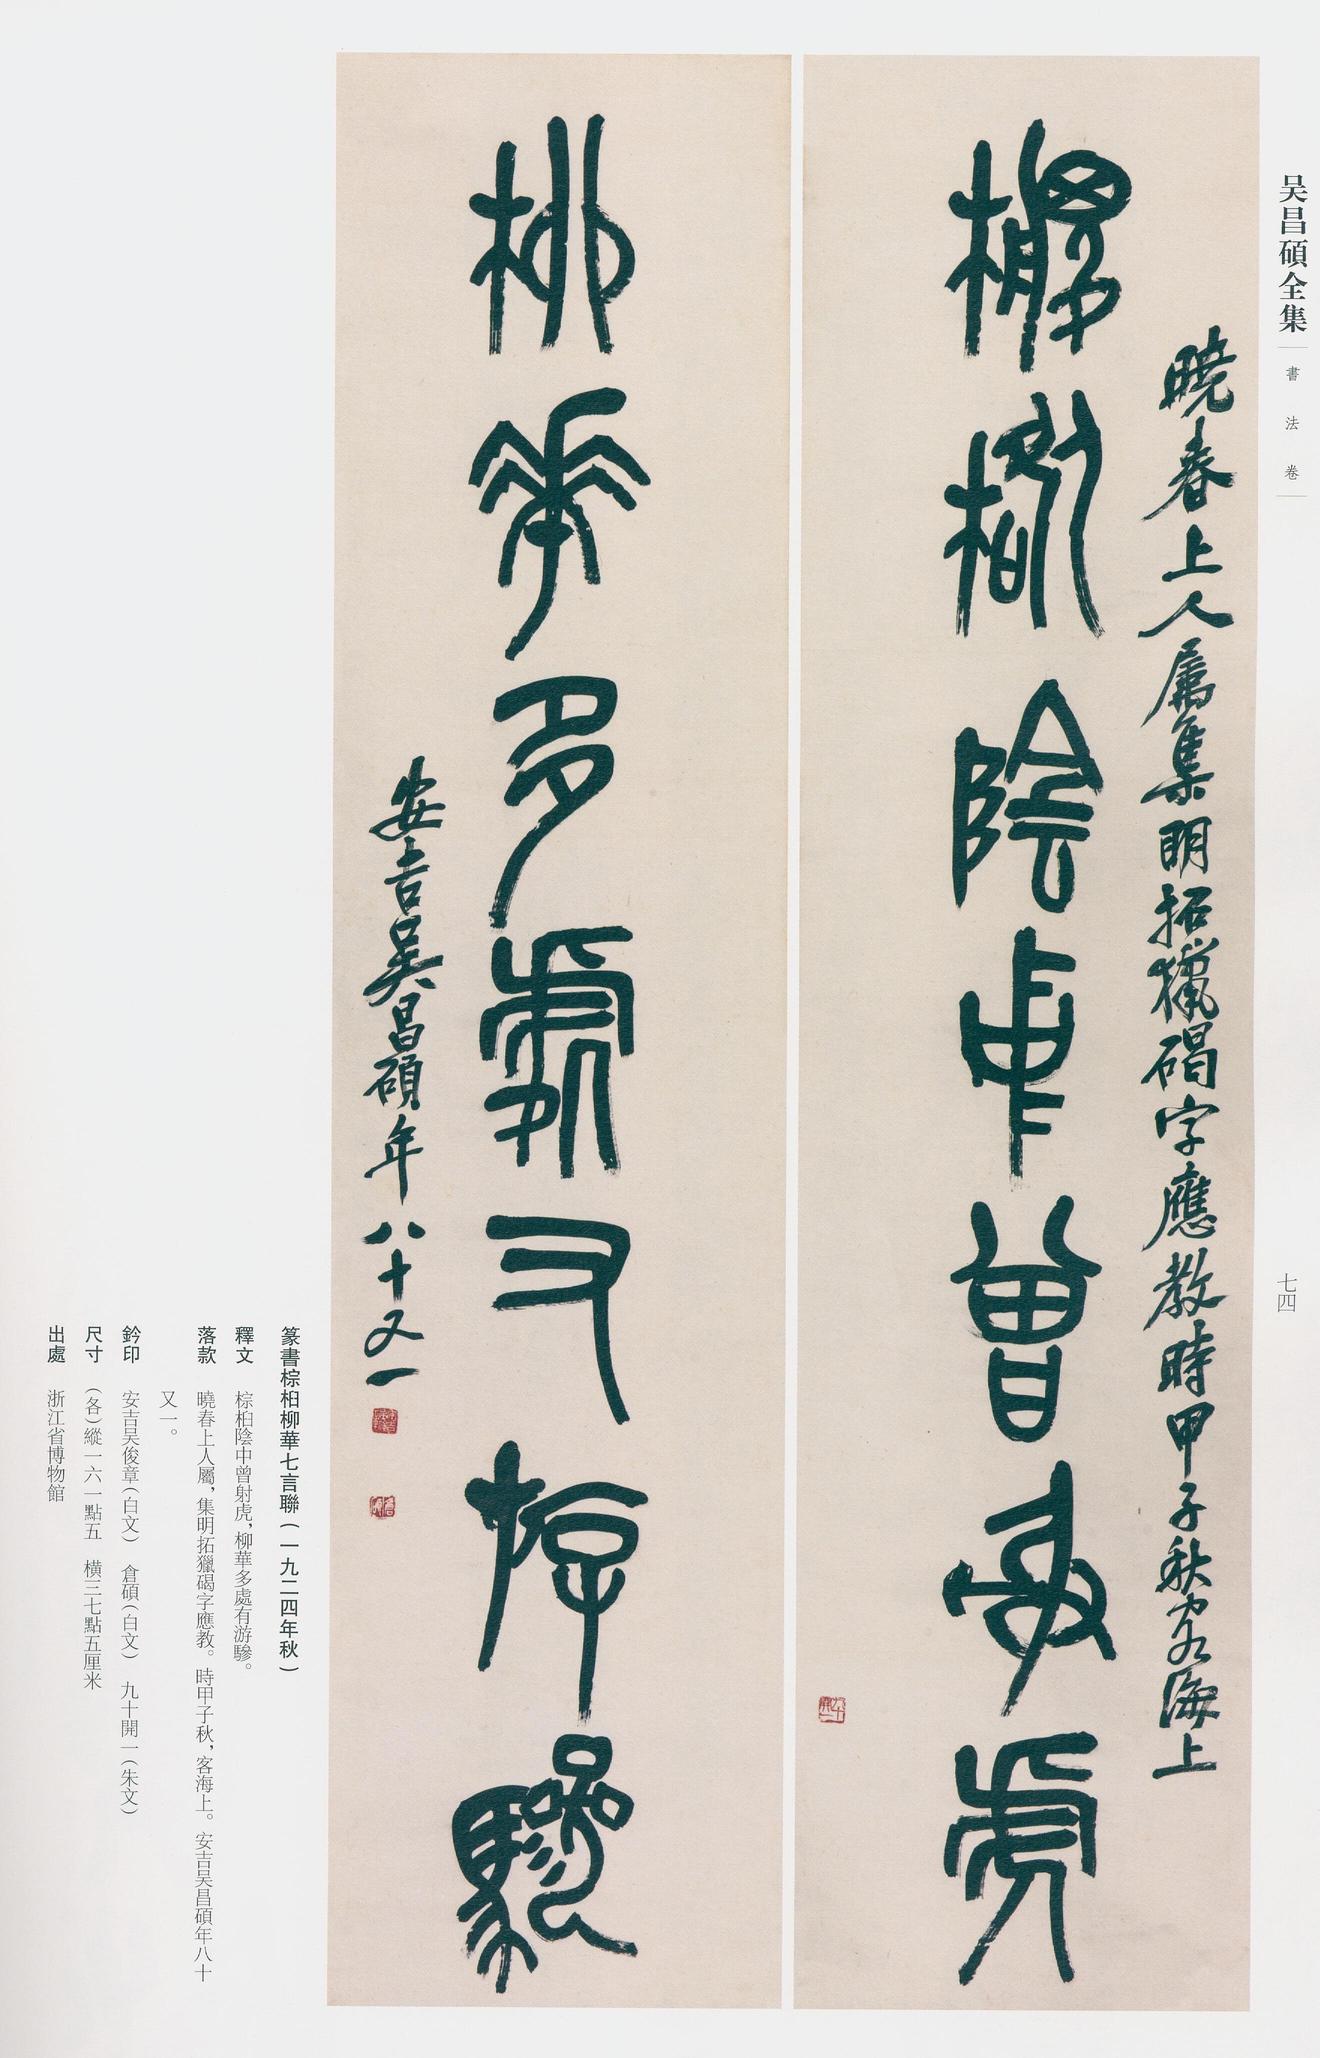 吴昌碩全集
書法卷
七四
曉春上人屬集明拓獵碣字應教時甲子秋客海上
棕桕陰中曾射虎
柳華多處又游驂
安吉吴昌碩年八十又一
篆書棕桕柳華七言聯(一九二四年秋)
釋文 棕桕陰中曾射虎，柳華多處有游驂。
落款 曉春上人屬，集明拓獵碣字應教。時甲子秋，客海上。安吉吴昌碩年八十
又一。
鈐印 安吉吴俊章(白文) 倉碩(白文) 九十開一(朱文)
尺寸 (各)縱一六一點五 橫三七點五厘米
出處 浙江省博物館